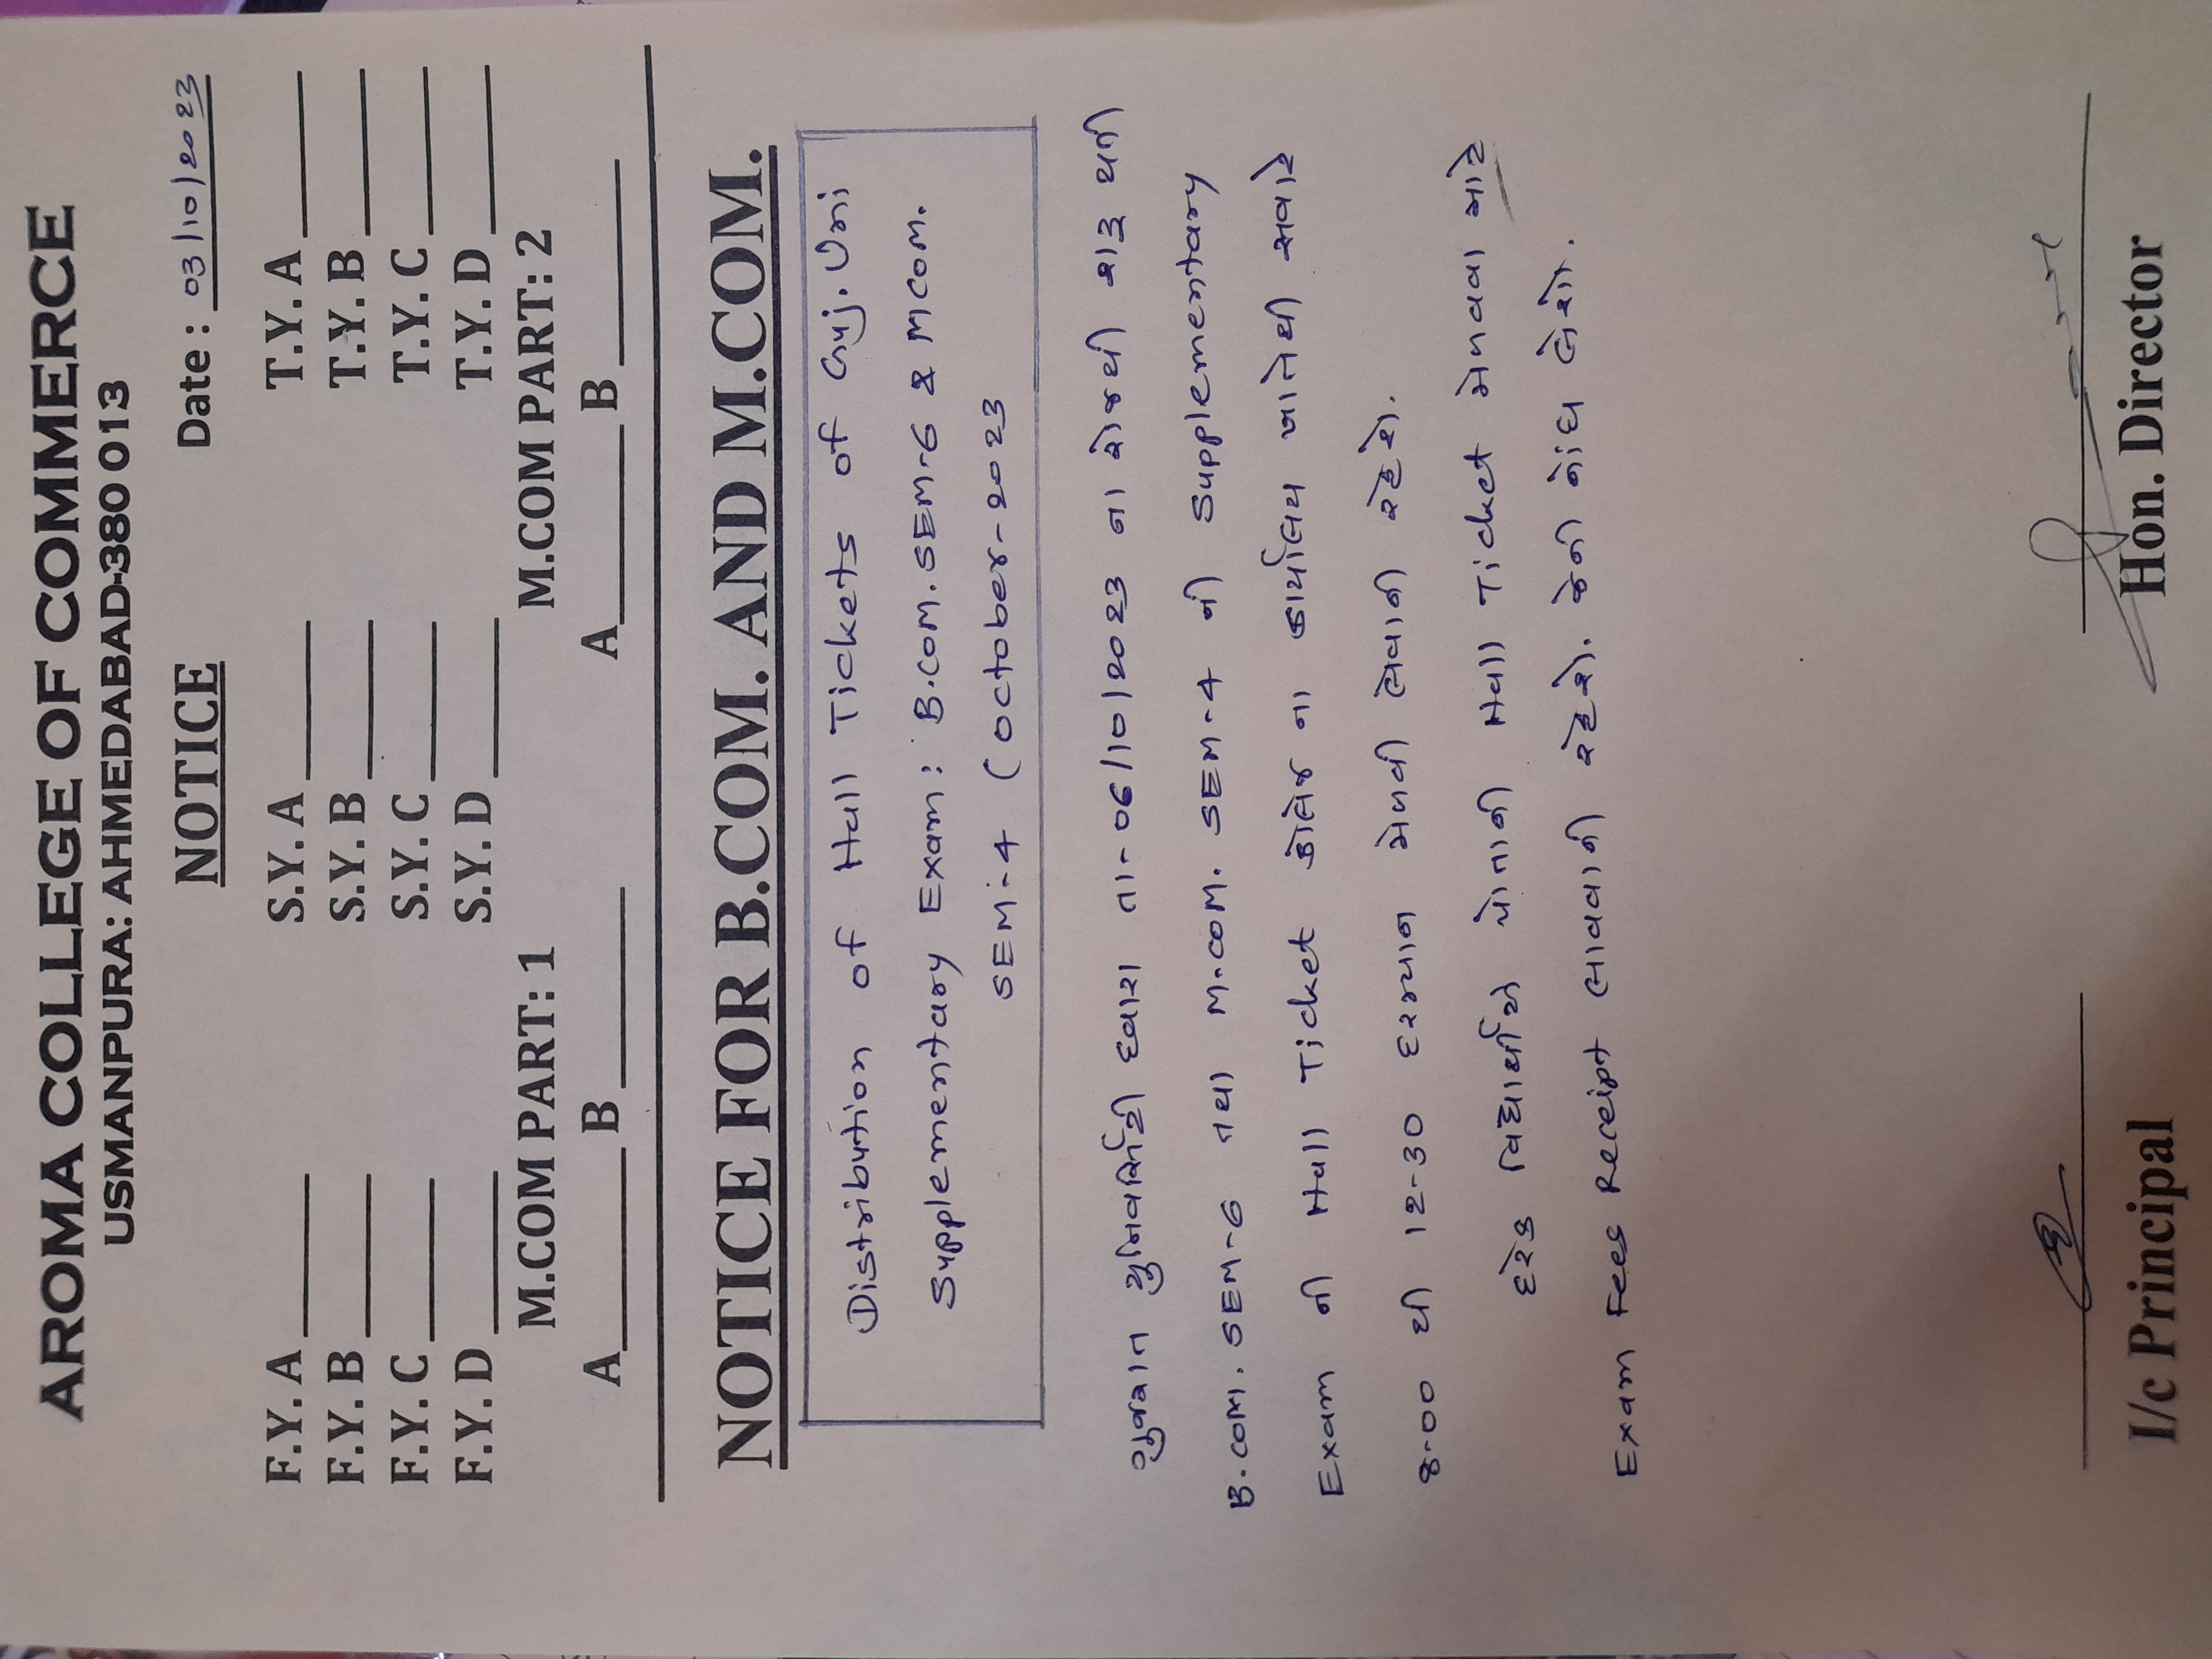 AROMA COLLEGE OF COMMERCE
USMANPURA: AHMEDABAD-380 013
NOTICE
Date : 03/10/2023
F.Y. A ______ S.Y. A ______ T.Y. A ______
F.Y. B ______ S.Y. B ______ T.Y. B ______
F.Y. C ______ S.Y. C ______ T.Y. C ______
F.Y. D ______ S.Y. D ______ T.Y. D ______
M.COM PART: 1 M.COM PART: 2
A______ B______ A______ B______
NOTICE FOR B.COM. AND M.COM.
Distribution of Hall Tickets of Guj. Uni
Supplementary Exam: B.COM. SEM-6 & M COM.
SEM-4 (October-2023
ગુજરાત યુનિવર્સિટી દ્વારા તા-06/10/2023 ના રોજથી શરૂ થતી
B.COM. SEM-6 તથા M.COM. SEM-4 ની Supplementary
Exam ની Hall Ticket કોલેજ ના કાર્યાલય ખાતેથી સવારે
8-00 થી 12-30 દરમ્યાન મેળવી લેવાની રહેશે.
દરેક વિદ્યાર્થીએ પોતાની Hall Ticket મેળવવા માટે
Exam Fees Receipt લાવવાની રહેશે. જેની નોંધ લેશો.
I/c Principal Hon. Director